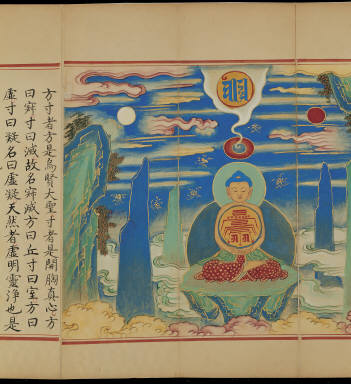 方寸者方是烏賢大聖寸者是開胸真心方
曰寂寸曰滅故名寂滅方曰丘寸曰室方曰
虛寸曰凝名曰虛凝天然者虛明靈淨也是